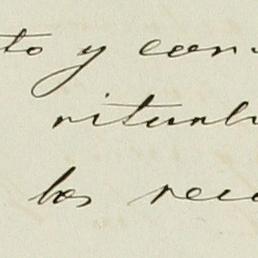 to y con
ritual
los rec